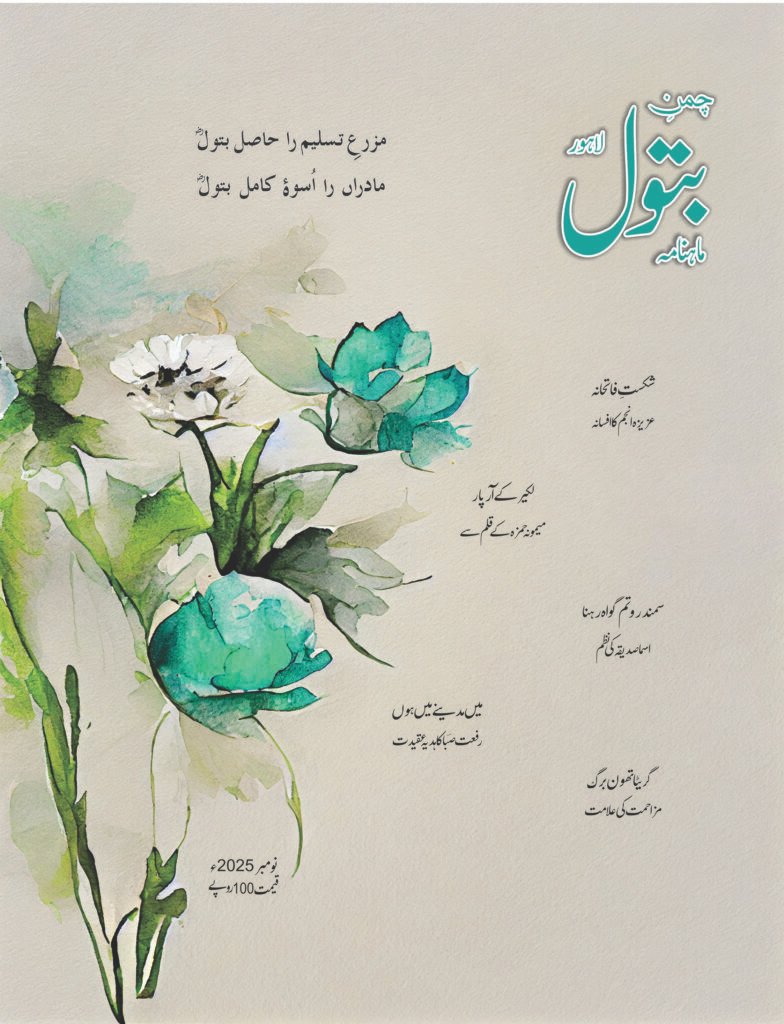 چمنِ
بتول
لاہور
ماہنامہ
مزرعِ تسلیم را حاصل بتولؓ
مادراں را اُسوۂ کامل بتولؓ
شکستِ فاتحانہ
عزیزہ انجم کا افسانہ
لکیر کے آر پار
میمونہ حمزہ کے قلم سے
سمندرو تم گواہ رہنا
اسما صدیقہ کی نظم
میں مدینے میں ہوں
رفعت صبا کا ہدیہ عقیدت
گریٹا تھون برگ
مزاحمت کی علامت
نومبر 2025ء
قیمت 100 روپے